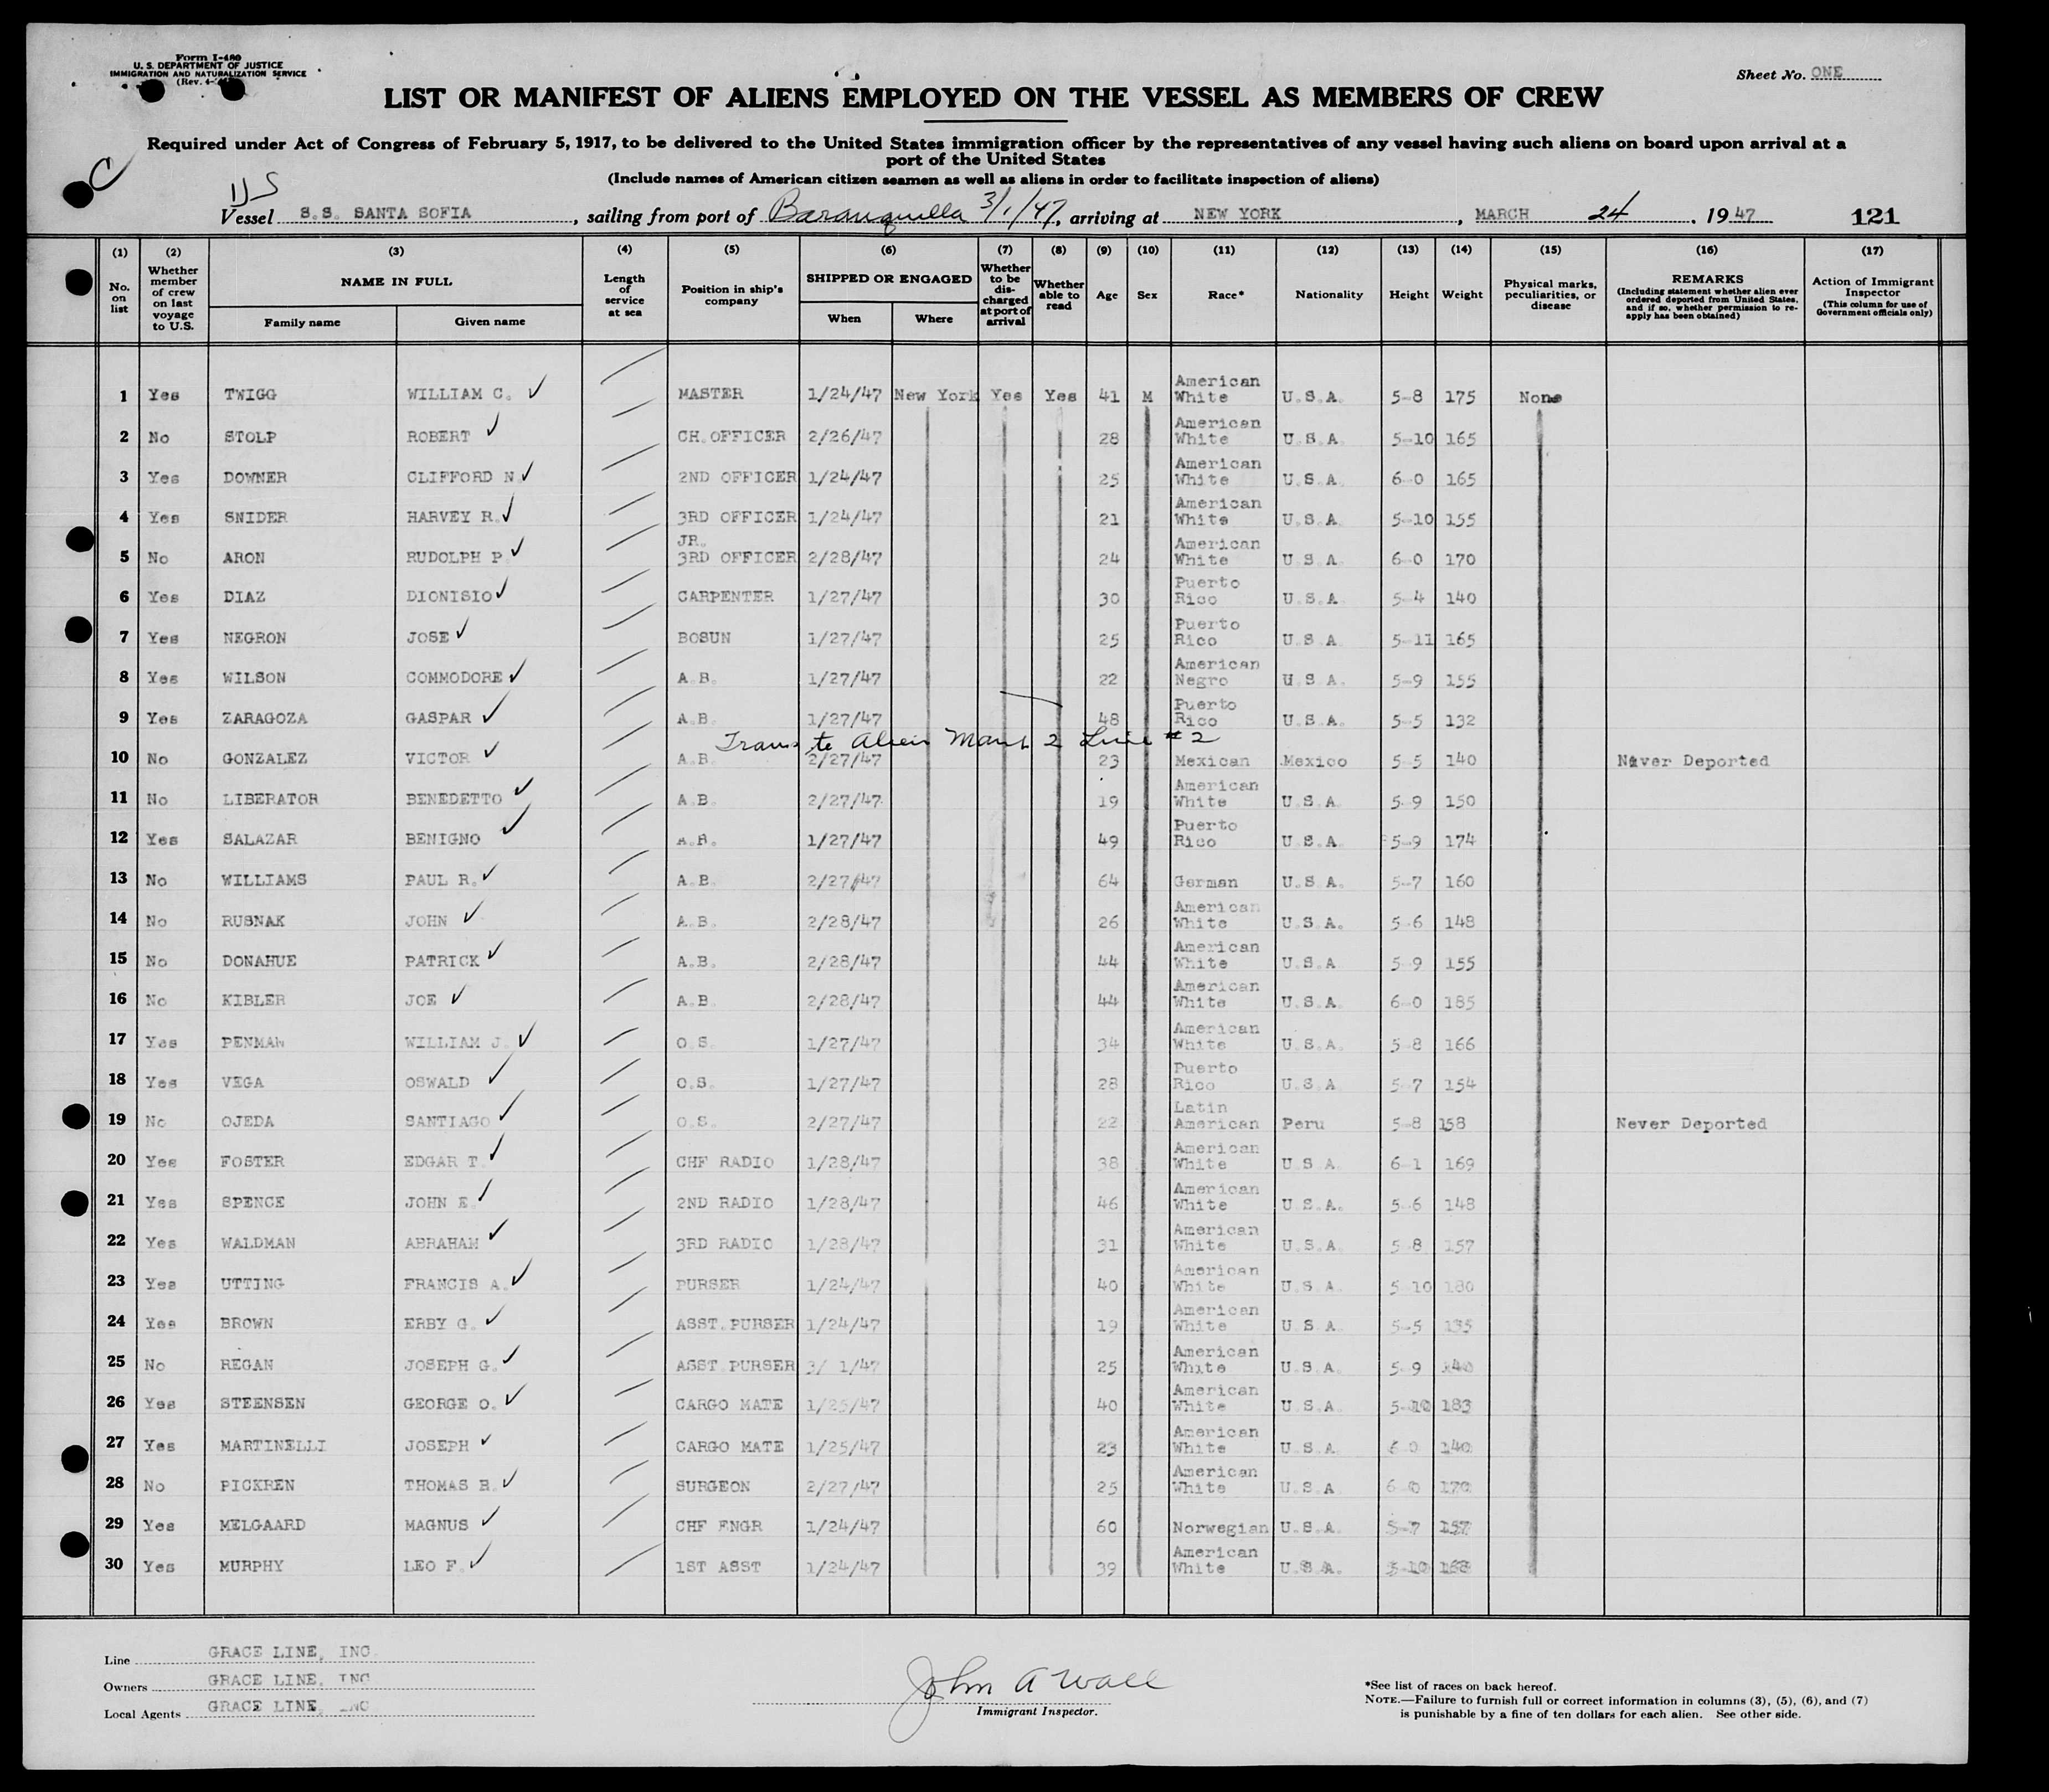 Form I-480
U. S. DEPARTMENT OF JUSTICE
IMMIGRATION AND NATURALIZATION SERVICE
(Rev. 4-
Sheet No. ONE
LIST OR MANIFEST OF ALIENS EMPLOYED ON THE VESSEL AS MEMBERS OF CREW
Required under Act of Congress of February 5, 1917, to be delivered to the United States immigration officer by the representatives of any vessel having such aliens on board upon arrival at a
port of the United States
(Include names of American citizen seamen as well as aliens in order to facilitate inspection of aliens)
US
Vessel S.S. SANTA SOFIA, sailing from port of Baranquilla 3/1/47, arriving at NEW YORK, MARCH 24, 1947 121
(1) (2) (3) (4) (5) (6) (7) (8) (9) (10) (11) (12) (13) (14) (15) (16) (17)
No. on list
Whether member of crew on last voyage to U.S.
NAME IN FULL
Family name Given name
Length of service at sea
Position in ship's company
SHIPPED OR ENGAGED
When Where
Whether to be discharged at port of arrival
Whether able to read
Age Sex Race* Nationality Height Weight
Physical marks, peculiarities, or disease
REMARKS
(Including statement whether alien ever ordered deported from United States, and if so, whether permission to reapply has been obtained)
Action of Immigrant Inspector
(This column for use of Government officials only)
1 Yes TWIGG WILLIAM C. MASTER 1/24/47 New York Yes Yes 41 M American White U.S.A. 5-8 175 None
2 No STOLP ROBERT CH.OFFICER 2/26/47 28 American White U.S.A. 5-10 165
3 Yes DOWNER CLIFFORD N. 2ND OFFICER 1/24/47 25 American White U.S.A. 6-0 165
4 Yes SNIDER HARVEY R. 3RD OFFICER 1/24/47 21 American White U.S.A. 5-10 155
5 No ARON RUDOLPH P. JR. 3RD OFFICER 2/28/47 24 American White U.S.A. 6-0 170
6 Yes DIAZ DIONISIO CARPENTER 1/27/47 30 Puerto Rico U.S.A. 5-4 140
7 Yes NEGRON JOSE BOSUN 1/27/47 25 Puerto Rico U.S.A. 5-11 165
8 Yes WILSON COMMODORE A.B. 1/27/47 22 American Negro U.S.A. 5-9 155
9 Yes ZARAGOZA GASPAR A.B. 1/27/47 48 Puerto Rico U.S.A. 5-5 132
Trans to Alien Manf 2 Line #2
10 No GONZALEZ VICTOR A.B. 2/27/47 23 Mexican Mexico 5-5 140 Never Deported
11 No LIBERATOR BENEDETTO A.B. 2/27/47 19 American White U.S.A. 5-9 150
12 Yes SALAZAR BENIGNO A.B. 1/27/47 49 Puerto Rico U.S.A. 5-9 174
13 No WILLIAMS PAUL R. A.B. 2/27/47 64 German U.S.A. 5-7 160
14 No RUSNAK JOHN A.B. 2/28/47 26 American White U.S.A. 5-6 148
15 No DONAHUE PATRICK A.B. 2/28/47 44 American White U.S.A 5-9 155
16 No KIBLER JOE A.B. 2/28/47 44 American White U.S.A. 6-0 185
17 Yes PENMAN WILLIAM J. O.S. 1/27/47 34 American White U.S.A. 5-8 166
18 Yes VEGA OSWALD O.S. 1/27/47 28 Puerto Rico U.S.A. 5-7 154
19 No OJEDA SANTIAGO O.S. 2/27/47 22 Latin American Peru 5-8 158 Never Deported
20 Yes FOSTER EDGAR T. CHF RADIO 1/28/47 38 American White U.S.A. 6-1 169
21 Yes SPENCE JOHN E. 2ND RADIO 1/28/47 46 American White U.S.A. 5-6 148
22 Yes WALDMAN ABRAHAM 3RD RADIO 1/28/47 31 American White U.S.A. 5-8 157
23 Yes UTTING FRANCIS A. PURSER 1/24/47 40 American White U.S.A. 5-10 180
24 Yes BROWN ERBY G. ASST.PURSER 1/24/47 19 American White U.S.A. 5-5 135
25 No REGAN JOSEPH G. ASST.PURSER 3/ 1/47 25 American White U.S.A. 5-9 140
26 Yes STEENSEN GEORGE O. CARGO MATE 1/25/47 40 American White U.S.A. 5-10 183
27 Yes MARTINELLI JOSEPH CARGO MATE 1/25/47 23 American White U.S.A. 6-0 140
28 No PICKREN THOMAS B. SURGEON 2/27/47 25 American White U.S.A. 6-0 170
29 Yes MELGAARD MAGNUS CHF ENGR 1/24/47 60 Norwegian U.S.A. 5-7 157
30 Yes MURPHY LEO F. 1ST ASST 1/24/47 39 American White U.S.A. 5-10 168
Line GRACE LINE, INC.
Owners GRACE LINE, INC
Local Agents GRACE LINE, INC
John A Wall
Immigrant Inspector.
*See list of races on back hereof.
NOTE.—Failure to furnish full or correct information in columns (3), (5), (6), and (7)
is punishable by a fine of ten dollars for each alien. See other side.